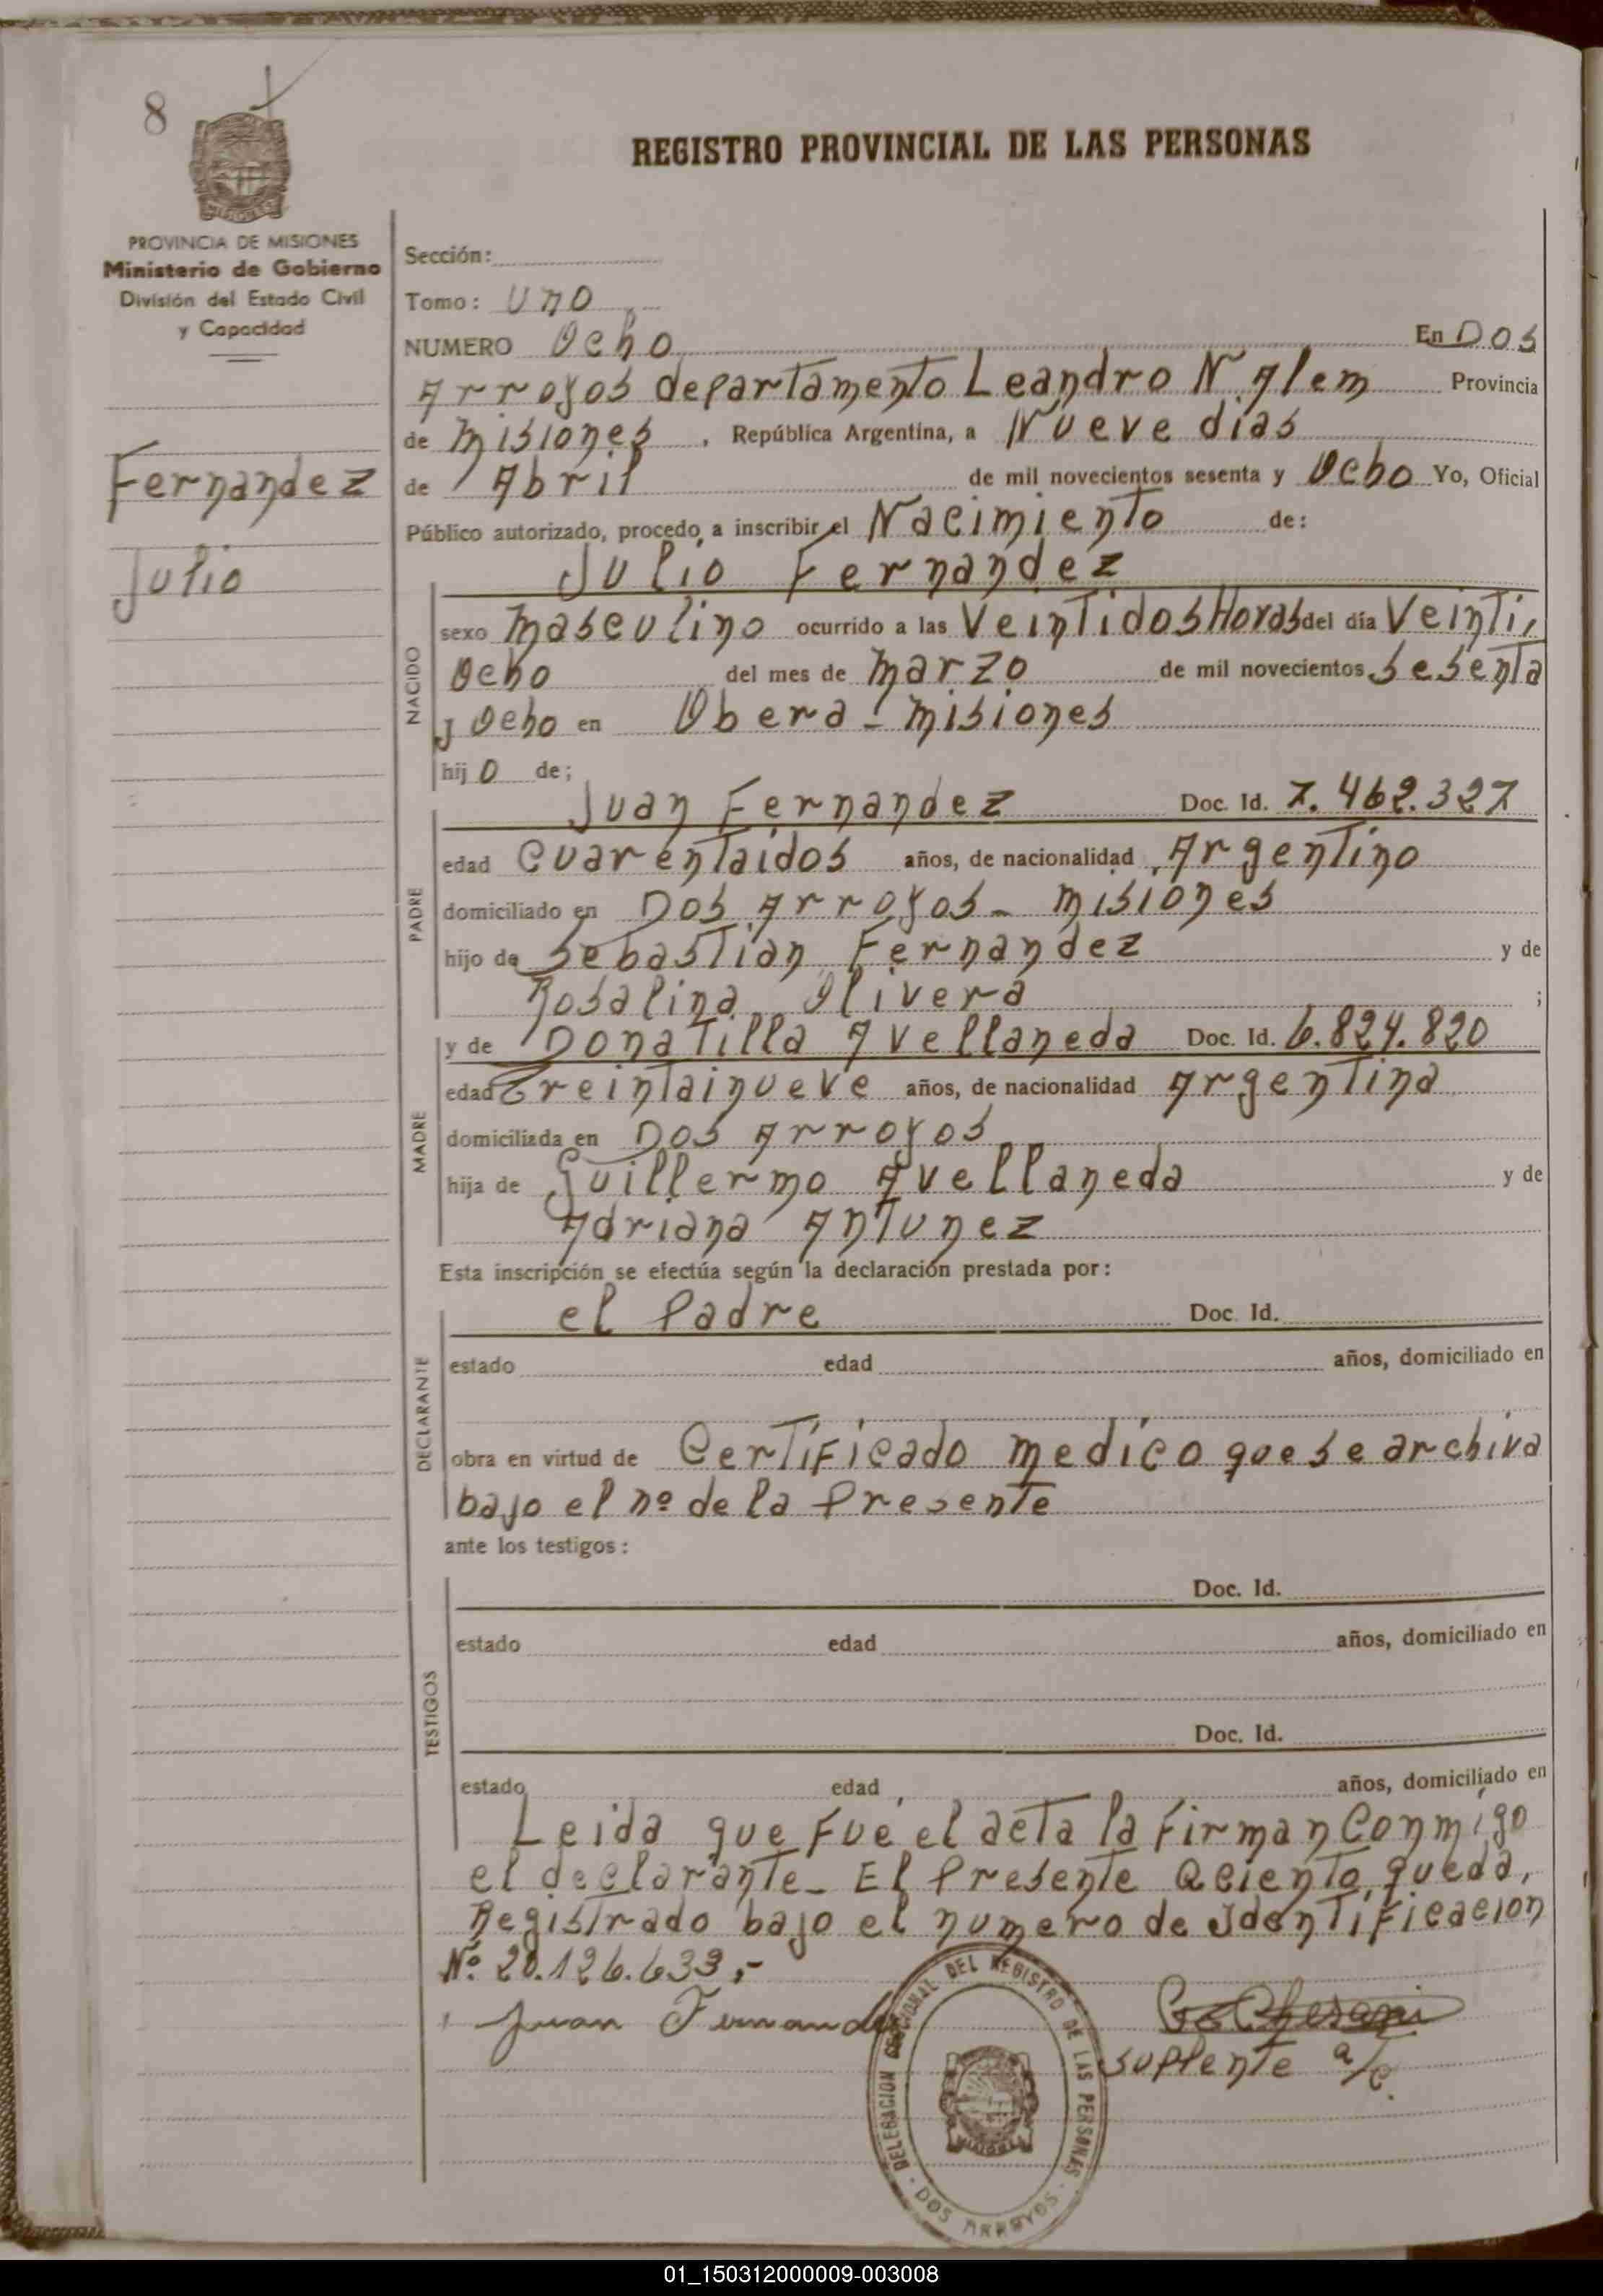 8
REGISTRO PROVINCIAL DE LAS PERSONAS
PROVINCIA DE MISIONES
Ministerio de Gobierno
División del Estado Civil
y Capacidad
Fernandez
Julio
Sección:
Tomo: Uno
NUMERO Ocho En Dos
Arroyos departamento Leandro N. Alem Provincia
de Misiones, República Argentina, a Nueve dias
de Abril de mil novecientos sesenta y Ocho Yo, Oficial
Público autorizado, procedo a inscribir el Nacimiento de:
NACIDO
Julio Fernandez
sexo Masculino ocurrido a las Veintidos Horas del día Veinti
Ocho del mes de Marzo de mil novecientos Sesenta
y Ocho en Obera - Misiones
hijo de;
PADRE
Juan Fernandez Doc. Id. 7.462.327
edad Cuarentaidos años, de nacionalidad Argentino
domiciliado en Dos Arroyos - Misiones
hijo de Sebastian Fernandez y de
Rosalina Olivera ;
MADRE
y de Donatilla Avellaneda Doc. Id. 6.824.820
edad Treintainueve años, de nacionalidad Argentina
domiciliada en Dos Arroyos
hija de Guillermo Avellaneda y de
Adriana Antunez
Esta inscripción se efectúa según la declaración prestada por:
DECLARANTE
el Padre Doc. Id.
estado edad años, domiciliado en
obra en virtud de Certificado medico que se archiva
bajo el nº de la Presente
ante los testigos:
TESTIGOS
Doc. Id.
estado edad años, domiciliado en
Doc. Id.
estado edad años, domiciliado en
Leida que fué el acta la firman Conmigo
el declarante - El Presente Aciento, queda,
Registrado bajo el numero de Identificacion
Nº 20.126.633,-
Juan Fernandez
Suplente a/c.
DELEGACION SECCIONAL DEL REGISTRO DE LAS PERSONAS
DOS ARROYOS
01_150312000009-003008